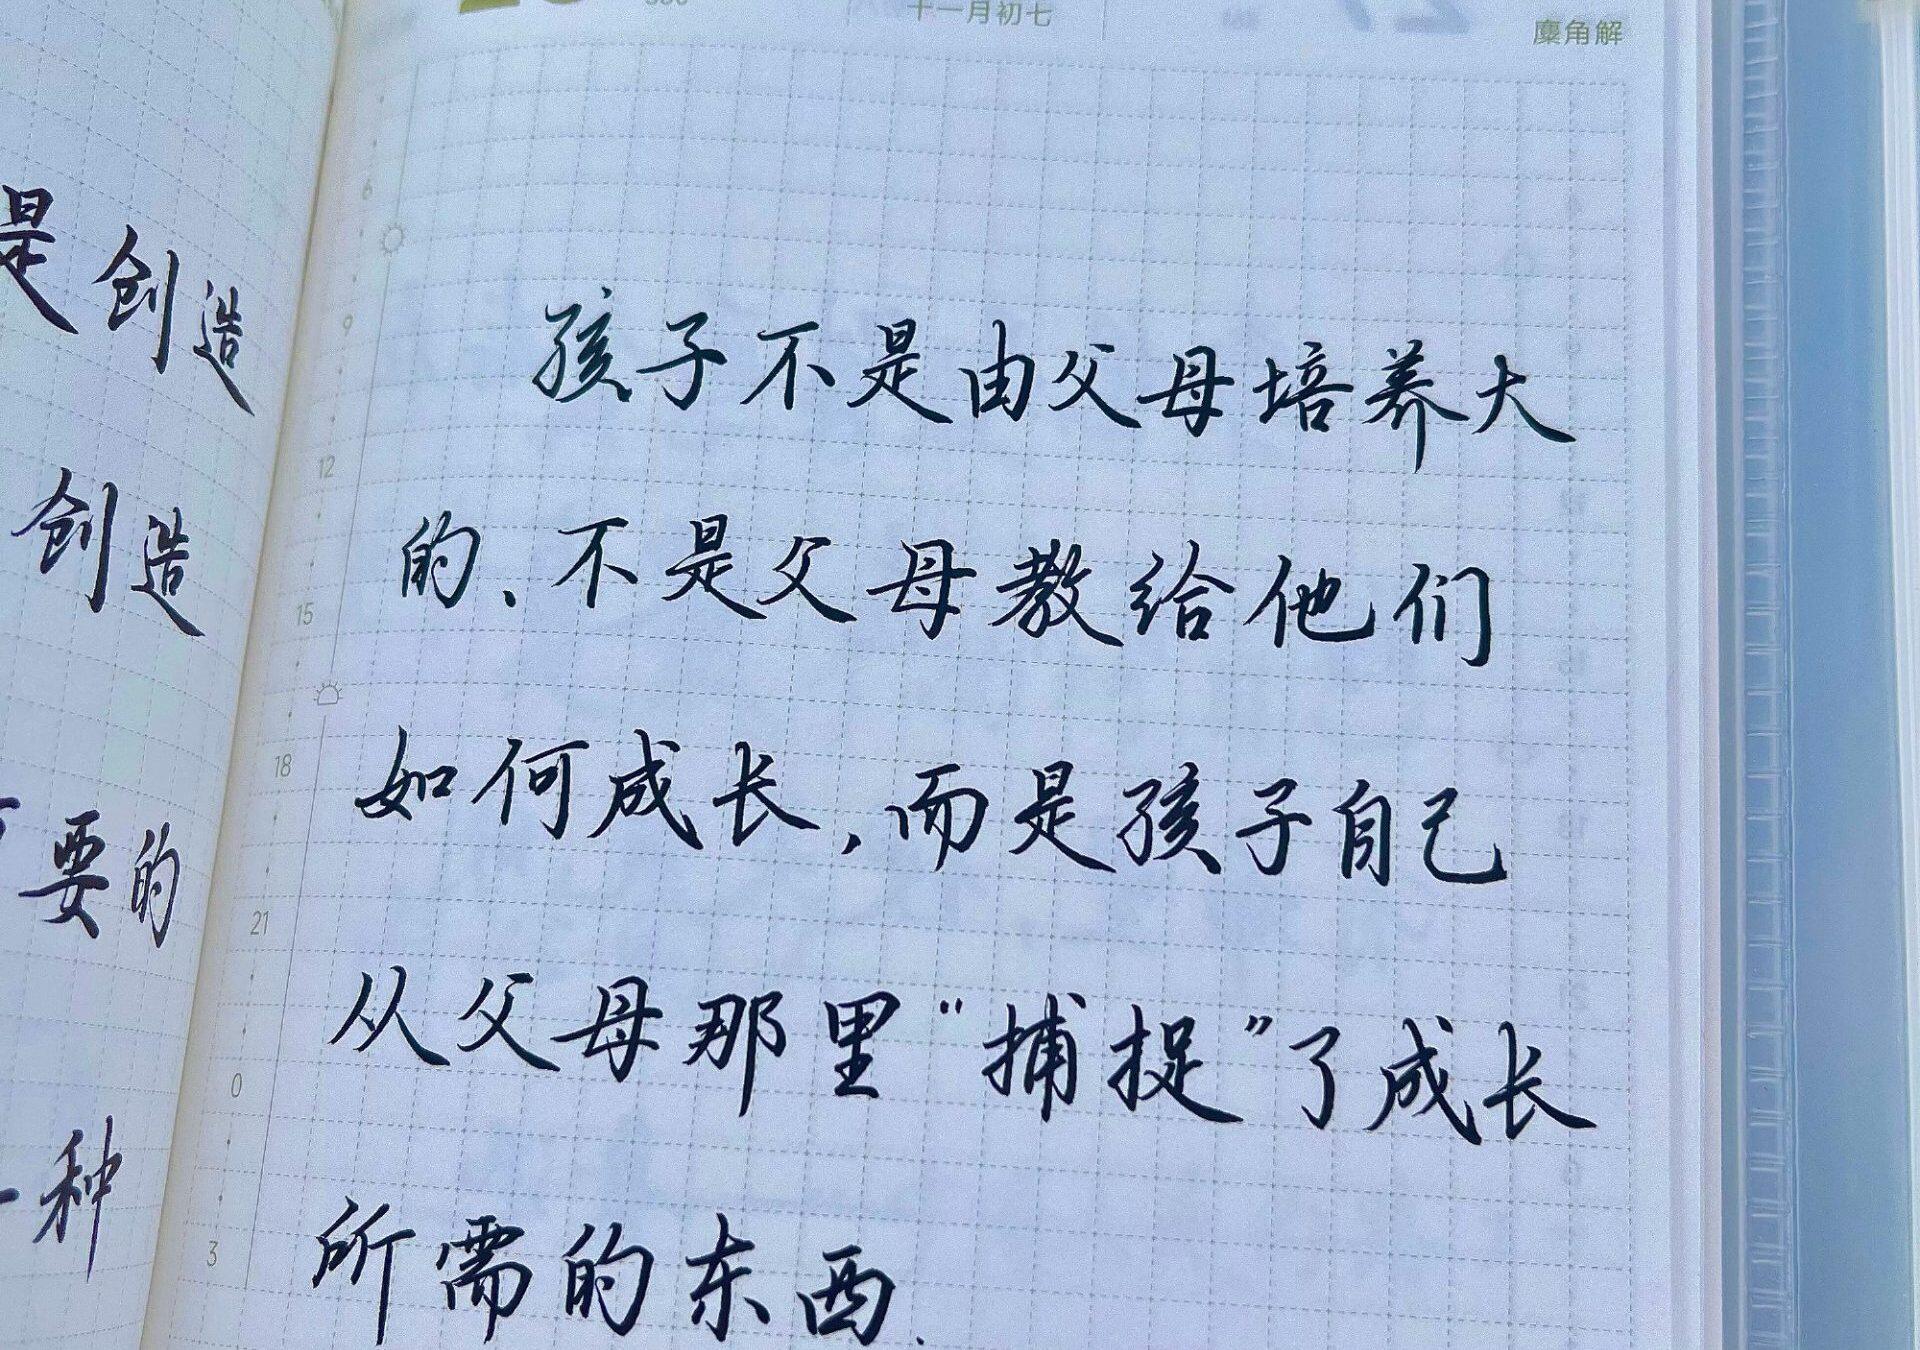 十一月初七
麋角解
是创造
创造
要的
种
6
9
12
15
18
21
0
3
孩子不是由父母培养大
的、不是父母教给他们
如何成长,而是孩子自己
从父母那里“捕捉”了成长
所需的东西.